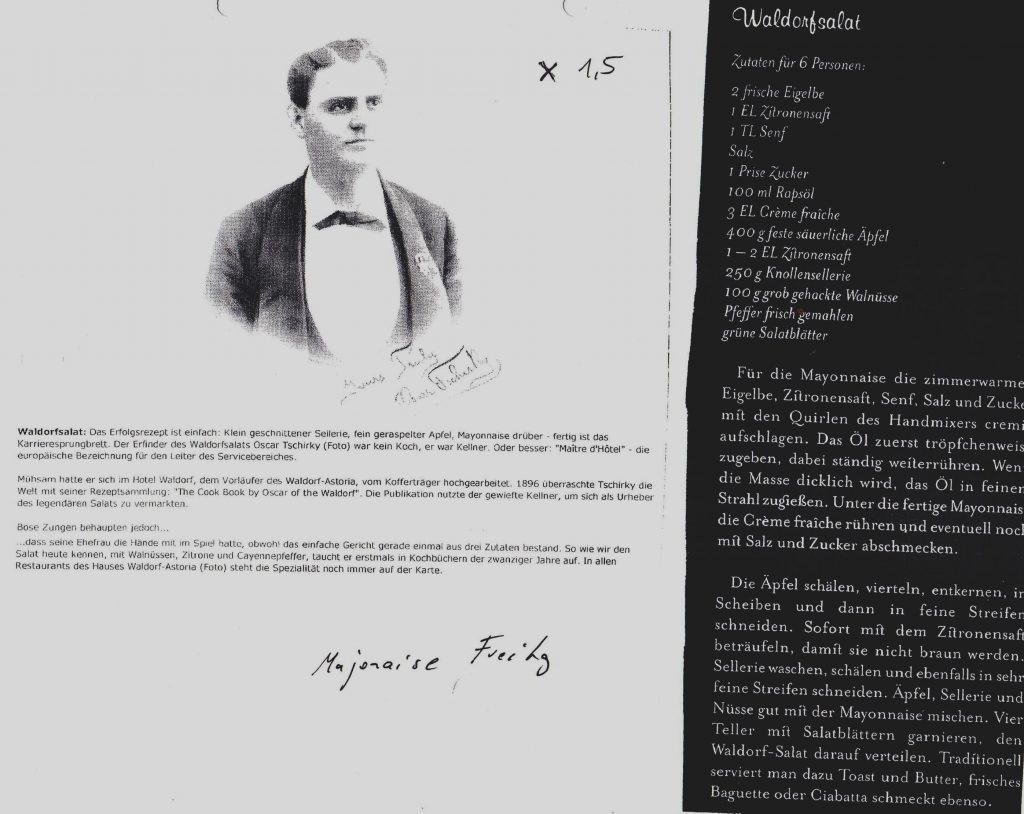 x 1,5
Yours Truly
Oscar Tschirky
Waldorfsalat: Das Erfolgsrezept ist einfach: Klein geschnittener Sellerie, fein geraspelter Apfel, Mayonnaise drüber - fertig ist das
Karrieresprungbrett. Der Erfinder des Waldorfsalats Oscar Tschirky (Foto) war kein Koch, er war Kellner. Oder besser: "Maître d'Hôtel" - die
europäische Bezeichnung für den Leiter des Servicebereiches.
Mühsam hatte er sich im Hotel Waldorf, dem Vorläufer des Waldorf-Astoria, vom Kofferträger hochgearbeitet. 1896 überraschte Tschirky die
Welt mit seiner Rezeptsammlung: "The Cook Book by Oscar of the Waldorf". Die Publikation nutzte der gewiefte Kellner, um sich als Urheber
des legendären Salats zu vermarkten.
Böse Zungen behaupten jedoch...
...dass seine Ehefrau die Hände mit im Spiel hatte, obwohl das einfache Gericht gerade einmal aus drei Zutaten bestand. So wie wir den
Salat heute kennen, mit Walnüssen, Zitrone und Cayennepfeffer, taucht er erstmals in Kochbüchern der zwanziger Jahre auf. In allen
Restaurants des Hauses Waldorf-Astoria (Foto) steht die Spezialität noch immer auf der Karte.
Majonaise
Waldorfsalat
Zutaten für 6 Personen:
2 frische Eigelbe
1 EL Zitronensaft
1 TL Senf
Salz
1 Prise Zucker
100 ml Rapsöl
3 EL Crème fraîche
400 g feste säuerliche Äpfel
1 – 2 EL Zitronensaft
250 g Knollensellerie
100 g grob gehackte Walnüsse
Pfeffer frisch gemahlen
grüne Salatblätter
Für die Mayonnaise die zimmerwarme
Eigelbe, Zitronensaft, Senf, Salz und Zucke
mit den Quirlen des Handmixers cremi
aufschlagen. Das Öl zuerst tröpfchenweis
zugeben, dabei ständig weiterrühren. Wen
die Masse dicklich wird, das Öl in feinen
Strahl zugießen. Unter die fertige Mayonnais
die Crème fraîche rühren und eventuell noch
mit Salz und Zucker abschmecken.
Die Äpfel schälen, vierteln, entkernen, in
Scheiben und dann in feine Streifen
schneiden. Sofort mit dem Zitronensaft
beträufeln, damit sie nicht braun werden.
Sellerie waschen, schälen und ebenfalls in sehr
feine Streifen schneiden. Äpfel, Sellerie und
Nüsse gut mit der Mayonnaise mischen. Vier
Teller mit Salatblättern garnieren, den
Waldorf-Salat darauf verteilen. Traditionell
serviert man dazu Toast und Butter, frisches
Baguette oder Ciabatta schmeckt ebenso.